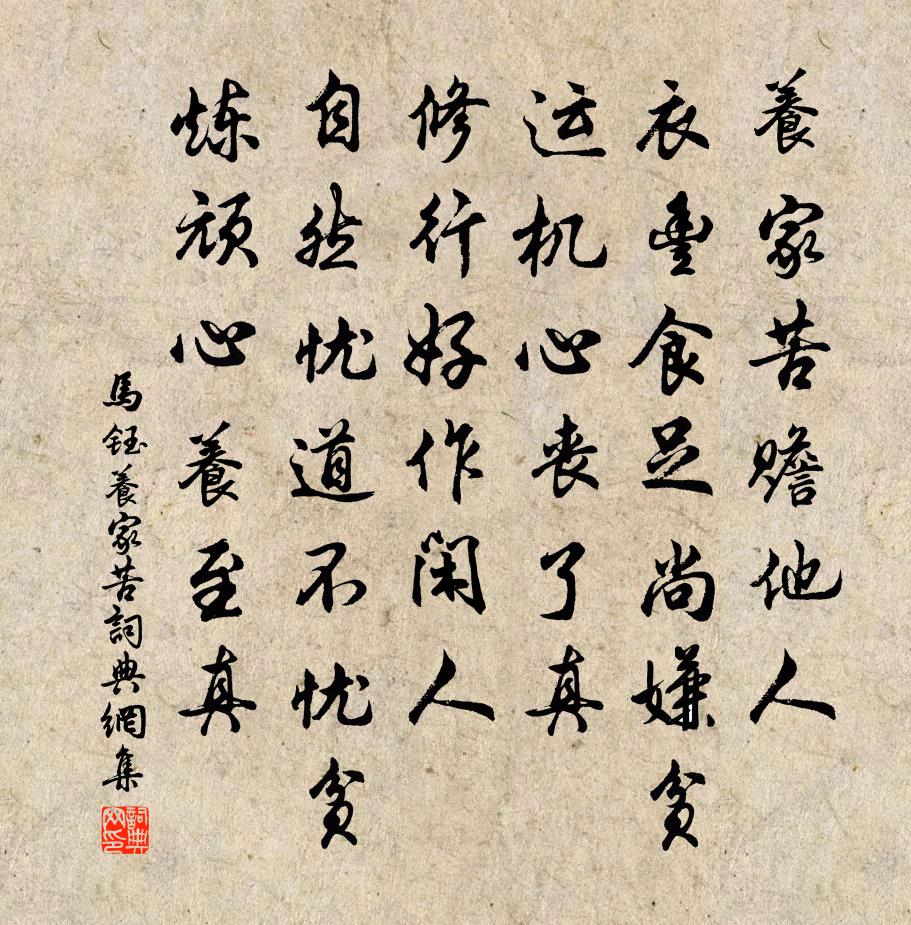 養家苦贍他人
衣豊食足尚嫌貧
运机心丧了真
修行好作闲人
自然忧道不忧貧
炼顽心養至真
馬鈺養家苦詞典網集
詞典网印